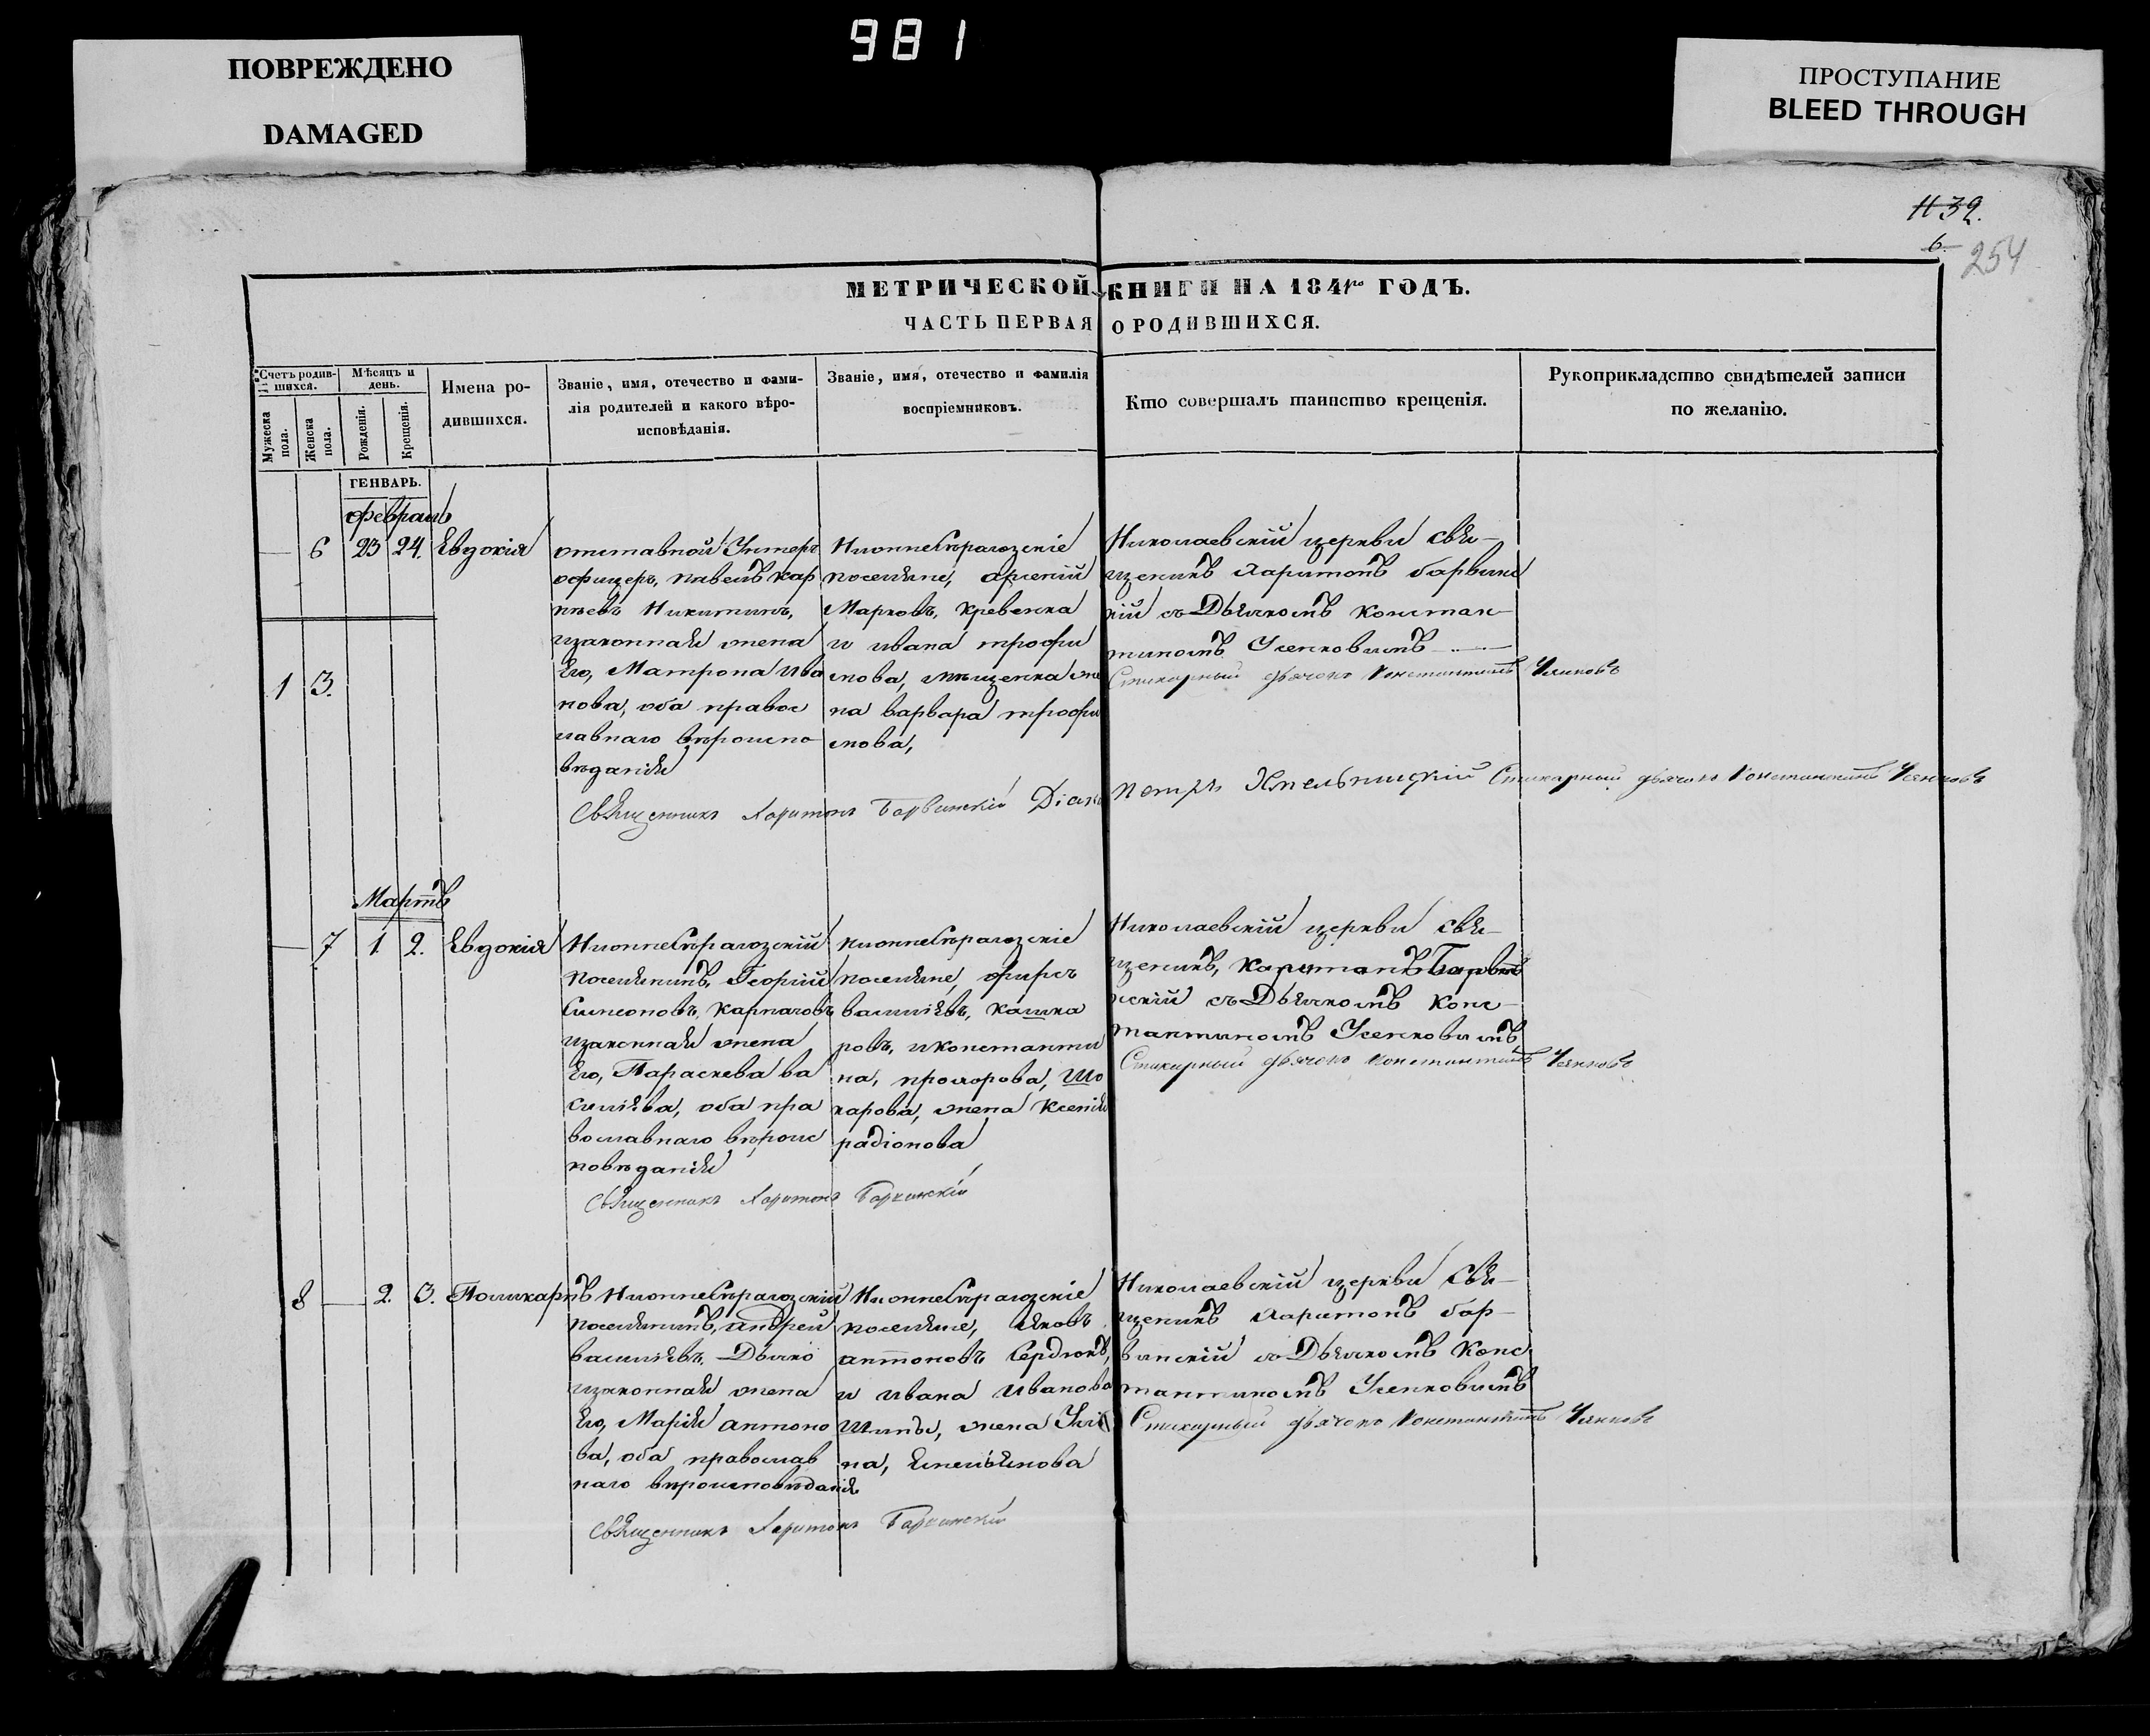 981
ПОВРЕЖДЕНО
DAMAGED
ПРОСТУПАНИЕ
BLEED THROUGH
1139.
6.
254
МЕТРИЧЕСКОЙ КНИГИ НА 1841го ГОДЪ.
ЧАСТЬ ПЕРВАЯ О РОДИВШИХСЯ.
Счетъ родив-
шихся.
Мужеска
пола.
Женска
пола.
Мѣсяцъ и
день.
Рожденія.
Крещенія.
Имена ро-
дившихся.
Званіе, имя, отечество и фами-
лія родителей и какого вѣро-
исповѣданія.
Званіе, имя, отечество и фамилія
воспріемниковъ.
Кто совершалъ таинство крещенія.
Рукоприкладство свидѣтелей записи
по желанію.
ГЕНВАРЬ.
Февраль
6 23 24. Евдокія
отставной Унтеръ
офицеръ, павелъ кар
пѣевъ Никитинъ,
изаконная жена
Его, Матрона Ива
нова, оба правос
лавнаго вѣроиспо
вѣданія
Нижнесѣрагозскіе
поселяне, арсеній
Марковъ, Кревенка
и ивана трофи
мова, мѣщенка же
на варвара трофи
мова,
Николаевскій церкви свя-
щеникъ Харитонъ барвинс
кій съ Дьячкомъ констан-
тиномъ Усенковымъ
Стихарный дьячокъ Константинъ Усенковъ
1 3.
Священникъ Харитонъ Барвинскій Діако Петръ Хмельницкій Стихарный дьячокъ Константинъ Усенковъ
Мартъ
7 1. 2. Евдокія
Нижнесѣрагозскій
поселянинъ, Георгий
Симеоновъ, Карпаговъ
изаконная жена
Его, Параскева ва
силіева, оба пра
вославнаго вѣроис
повѣданія
нижнесѣрагозскіе
поселяне, фирсъ
василіевъ, кашка
ровъ, иконстанти
на, прохорова, Шо
карова, жена Ксенія
радіонова
Николаевскій церкви свя-
щеникъ, Харитонъ Барвин
нскій съ Дьячкомъ Конс-
тантиномъ Усенковымъ
Стихарный дьячокъ Константинъ Усенковъ
Священникъ Харитонъ Барвинскій
8 2. 3. Поликарпъ
Нижнесѣрагозскій
поселянинъ, андрей
василіевъ, Дьячко
изаконная жена
Его, Марія антоно
ва, оба православ
наго вѣроисповѣданія
Нижнесѣрагозскіе
поселяне, Яковъ
антоновъ Сердюкъ,
и Ивана Иванова
Шипы, жена Улія
на, Емельянова
Николаевскій церкви Свя-
щеникъ Харитонъ бар-
винскій съ Дьячкомъ Конс
тантиномъ Усенковымъ
Стихарный дьячокъ Константинъ Усенковъ
Священникъ Харитонъ Барвинскій